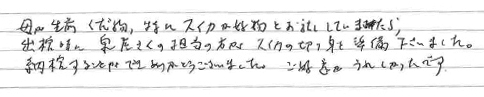 母が生前 くだ物、特にスイカが好物とお話ししていましたら、
出棺時に 泉屋さんの担当の方が スイカの切り身を準備下さいました。
納棺することができ ありがとうございました。 ご好意が うれしかったです